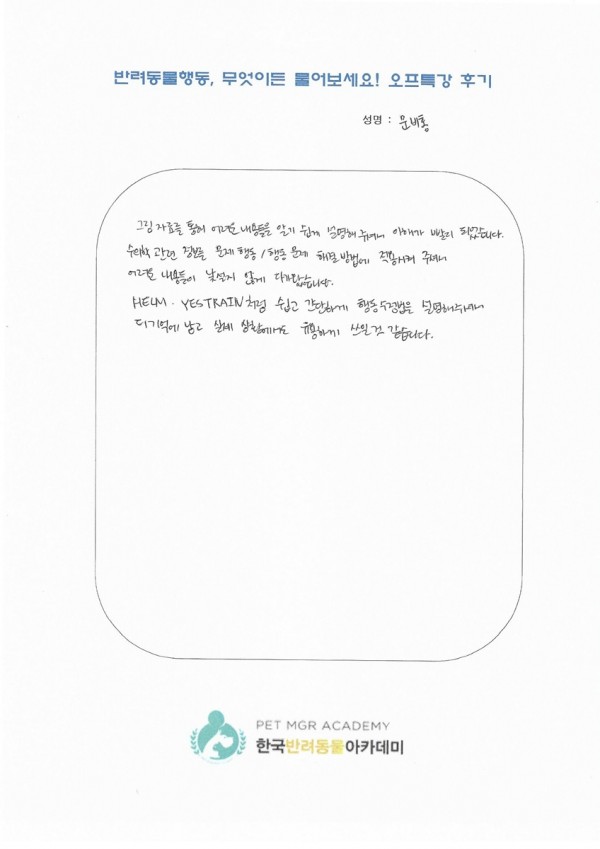 반려동물행동, 무엇이든 물어보세요! 오프특강 후기
성명 : 문비홍
그림 자료를 통해 어려운 내용들을 알기 쉽게 설명해 주셔서 이해가 빨리 되었습니다.
수의학 관련 정보를 문제 행동 / 행동 문제 해결 방법에 적용시켜 주셔서
어려운 내용들이 낯설지 않게 다가왔습니다.
HELM · YES TRAIN처럼 쉽고 간단하게 행동수정법을 설명해주셔서
더 기억에 남고 실제 상황에서도 유용하게 쓰일 것 같습니다.
PET MGR ACADEMY
한국반려동물아카데미